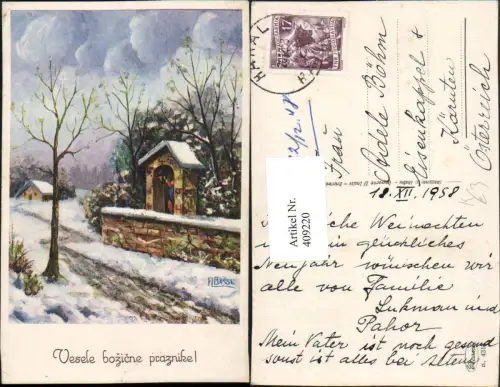 Vesele božične praznike!
17
Frau
Adele Böhm
Eisenkappel 8
Kärnten
Österreich
18. XII. 1958
Artikel Nr.
409220
Weinachten
glückliches
Neujahr wünschen wir
alle von Familie
Lukman und
Pahor
Mein Vater ist noch gesund
sonst ist alles bei